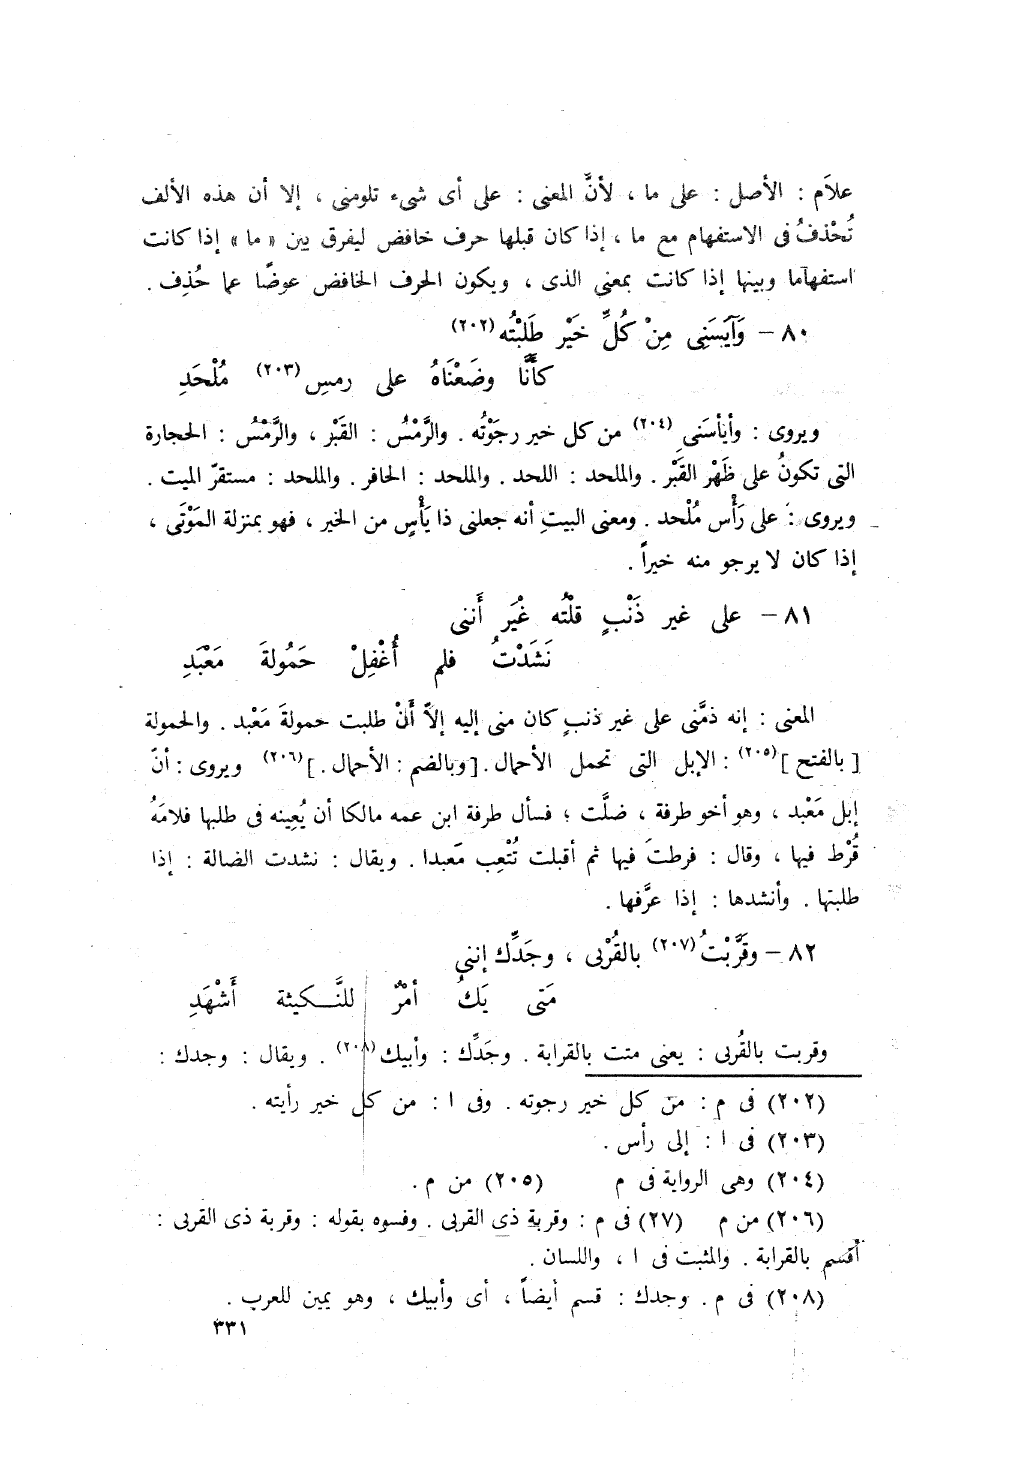 علاَم : الأصل : على ما ، لأنَّ المعنى : على أى شىء تلومنى ، إلا أن هذه الألف
تُحْذفُ فى الاستفهام مع ما ، إذا كان قبلها حرف خافض ليفرق بين « ما » إذا كانت
استفهاما وبينها إذا كانت بمعنى الذى ، ويكون الحرف الخافض عوضًا عما حُذِف .
٨٠ – وَآيَسَنِى مِنْ كُلِّ خَيْر طَلَبْتُه (٢٠٢)
كأَنَّا وضَعْنَاهُ على رمسِ (٢٠٣) مُلْحَدِ
ويروى : وأيأسَنىِ (٢٠٤) من كل خير رجوْتُه . والرَّمْسُ : القَبْر ، والرَّمْسُ : الحجارة
التى تكونُ على ظَهْر القَبْر . والملحد : اللحد . والملحد : الحافر . والملحد : مستقرّ الميت .
ويروى : على رَأْس مُلْحد . ومعنى البيتِ أنه جعلنى ذا يَأْسٍ من الخير ، فهو بمنزلة المَوْتَى ،
إذا كان لا يرجو منه خيراً .
٨١ – على غير ذَنْبٍ قلْتُه غْيَر أَننى
نَشَدْتُ فلم أُغْفِلْ حَمُولةَ مَعْبَدِ
المعنى : إنه ذمَّنى على غير ذنبٍ كان منى إليه إلاَّ أَنْ طلبت حمولةَ مَعْبد . والحمولة
[ بالفتح ] (٢٠٥) : الإبل التى تحمل الأحمال . [ وبالضم : الأحمال . ] (٢٠٦) ويروى : أنّ
إبل مَعْبد ، وهو أخو طرفة ، ضلَّت ؛ فسأل طرفة ابن عمه مالكا أن يُعِينه فى طلبها فلامَهُ
قُرْط فيها ، وقال : فرطتَ فيها ثم أقبلت تُتْعِب مَعبدا . ويقال : نشدت الضالة : إذا
طلبتها . وأنشدها : إذا عرَّفها .
٨٢ – وقَرَّبْتُ (٢٠٧) بالقُرْبى ، وجَدِّك إننى
مَتى يَكُ أمْرٌ للنَّـكيثة أَشْهَدِ
وقربت بالقُربى : يعنى متت بالقرابة . وجَدِّك : وأبيك (٢٠٨) . ويقال : وجدك :
(٢٠٢) فى م : من كل خير رجوته . وفى ا : من كل خير رأيته .
(٢٠٣) فى ا : إلى رأس .
(٢٠٤) وهى الرواية فى م (٢٠٥) من م .
(٢٠٦) من م (٢٧) فى م : وقربة ذى القربى . وفسوه بقوله : وقربة ذى القربى :
أقسم بالقرابة . والمثبت فى ا ، واللسان .
(٢٠٨) فى م . وجدك : قسم أيضاً ، أى وأبيك ، وهو يمين للعرب .
٣٣١